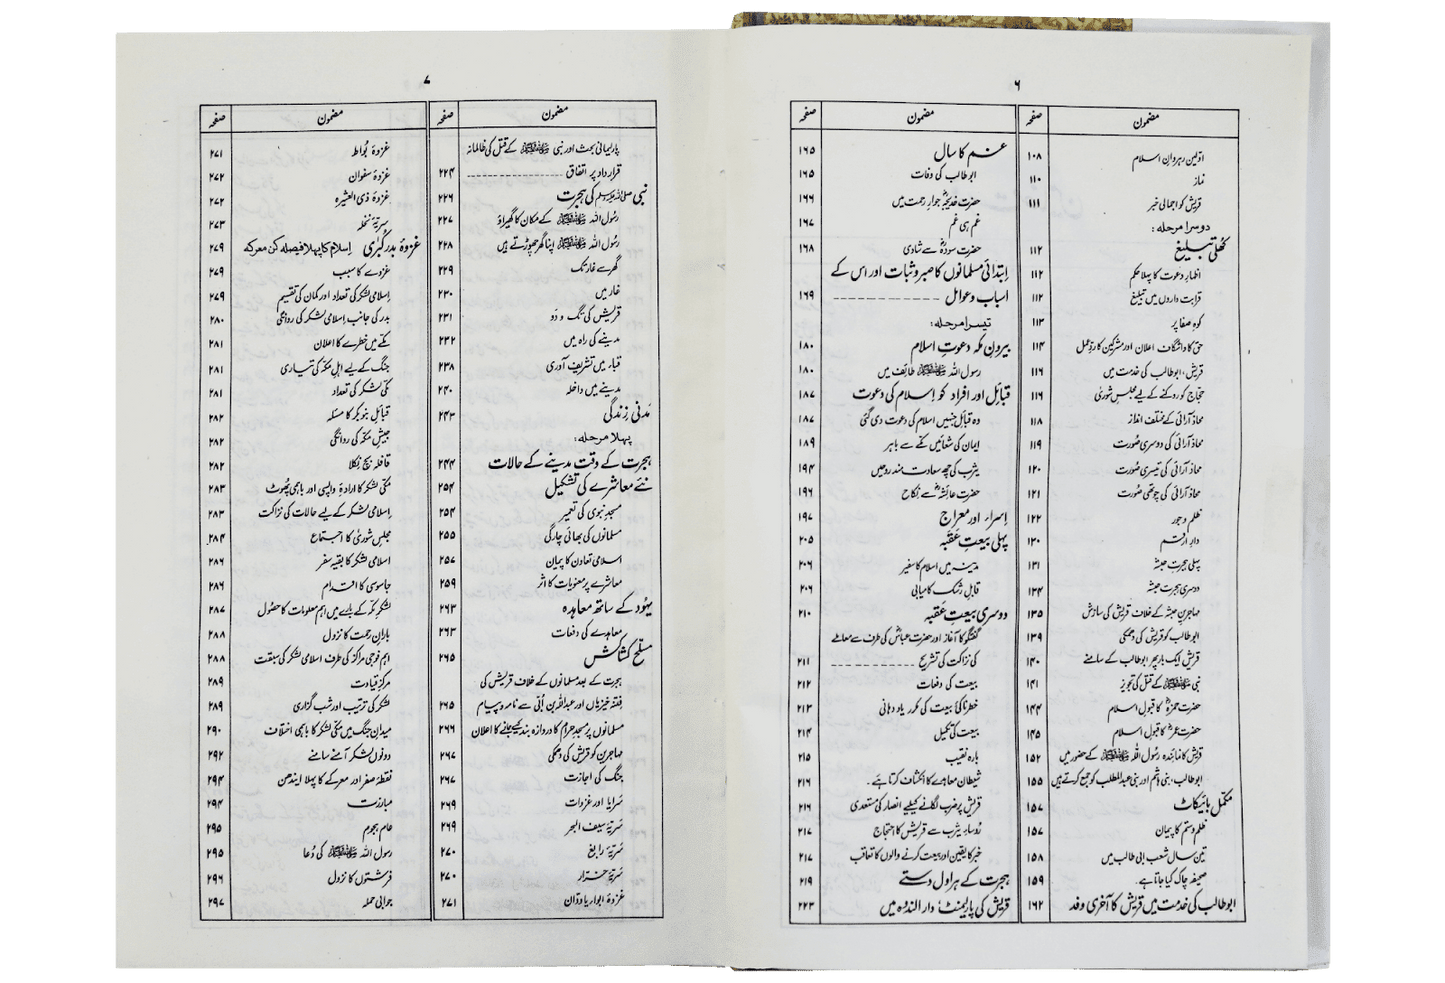 ۶
مضمون صفحہ
اوّلین رہروانِ اسلام ۱۰۸
نماز ۱۱۰
قریش کو اجمالی خبر ۱۱۱
دوسرا مرحلہ:
کھلی تبلیغ ۱۱۲
اظہارِ دعوت کا پہلا حکم ۱۱۲
قرابت داروں میں تبلیغ ۱۱۲
کوہِ صفا پر ۱۱۳
حق کا واشگاف اعلان اور مشرکین کا ردِّعمل ۱۱۴
قریش، ابوطالب کی خدمت میں ۱۱۶
حجاج کو روکنے کے لیے مجلسِ شورٰی ۱۱۶
محاذ آرائی کے مختلف انداز ۱۱۸
محاذ آرائی کی دوسری صُورت ۱۱۹
محاذ آرائی کی تیسری صُورت ۱۲۰
محاذ آرائی کی چوتھی صُورت ۱۲۱
ظلم و جور ۱۲۲
دارِ ارقم ۱۳۰
پہلی ہجرتِ حبشہ ۱۳۱
دوسری ہجرتِ حبشہ ۱۳۴
مہاجرینِ حبشہ کے خلاف قریش کی سازش ۱۳۵
ابوطالب کو قریش کی دھمکی ۱۳۹
قریش ایک بار پھر ابوطالب کے سامنے ۱۴۰
نبی ﷺ کے قتل کی تجویز ۱۴۱
حضرت حمزہؓ کا قبولِ اسلام ۱۴۴
حضرت عمرؓ کا قبولِ اسلام ۱۴۵
قریش کا نمائندہ رسُول اللہ ﷺ کے حضور میں ۱۵۲
ابوطالب، بنی ہاشم اور بنی عبدالمطلب کو جمع کرتے ہیں ۱۵۵
مکمل بائیکاٹ ۱۵۷
ظلم و ستم کا پیمان ۱۵۷
تین سال شعب ابی طالب میں ۱۵۸
صحیفہ چاک کیا جاتا ہے۔ ۱۵۹
ابوطالب کی خدمت میں قریش کا آخری وفد ۱۶۲
مضمون صفحہ
غم کا سال ۱۶۵
ابوطالب کی وفات ۱۶۵
حضرت خدیجہؓ جوارِ رحمت میں ۱۶۶
غم ہی غم ۱۶۷
حضرت سودہؓ سے شادی ۱۶۸
ابتدائی مسلمانوں کا صبر و ثبات اور اس کے
اسباب و عوامل ۱۶۹
تیسرا مرحلہ:
بیرونِ مکہ دعوتِ اسلام ۱۸۰
رسول اللہ ﷺ طائف میں ۱۸۰
قبائل اور افراد کو اسلام کی دعوت ۱۸۷
وہ قبائل جنہیں اسلام کی دعوت دی گئی ۱۸۷
ایمان کی شعائیں مکّے سے باہر ۱۸۹
یثرب کی چھ سعادت مند روحیں ۱۹۴
حضرت عائشہؓ سے نکاح ۱۹۶
اسراء اور معراج ۱۹۷
پہلی بیعتِ عقبہ ۲۰۵
مدینہ میں اسلام کا سفیر ۲۰۶
قابلِ رشک کامیابی ۲۰۶
دوسری بیعتِ عقبہ ۲۱۰
گفتگو کا آغاز اور حضرت عباسؓ کی طرف سے معاملے
کی نزاکت کی تشریح ۲۱۱
بیعت کی دفعات ۲۱۲
خطرناکئ بیعت کی مکرر یاد دہانی ۲۱۳
بیعت کی تکمیل ۲۱۴
بارہ نقیب ۲۱۵
شیطان معاہدے کا انکشاف کرتا ہے۔ ۲۱۶
قریش پر ضرب لگانے کیلیے انصار کی مستعدی ۲۱۶
رؤساء یثرب سے قریش کا احتجاج ۲۱۷
خبر کا یقین اور بیعت کرنے والوں کا تعاقب ۲۱۷
ہجرت کے ہراول دستے ۲۱۹
قریش کی پارلیمنٹ دار الندوہ میں ۲۲۳
۷
مضمون صفحہ
پارلیمانی بحث اور نبی ﷺ کے قتل کی ظالمانہ
قرارداد پر اتفاق ۲۲۴
نبی ﷺ کی ہجرت ۲۲۶
رسُول اللہ ﷺ کے مکان کا گھیراؤ ۲۲۷
رسُول اللہ ﷺ اپنا گھر چھوڑتے ہیں ۲۲۸
گھر سے غار تک ۲۲۹
غار میں ۲۳۰
قریش کی تگ و دَو ۲۳۱
مدینے کی راہ میں ۲۳۲
قباء میں تشریف آوری ۲۳۸
مدینے میں داخلہ ۲۴۰
مَدنی زندگی ۲۴۳
پہلا مرحلہ:
ہجرت کے وقت مدینے کے حالات ۲۴۴
نئے معاشرے کی تشکیل ۲۵۴
مسجدِ نبوی کی تعمیر ۲۵۴
مسلمانوں کی بھائی چارگی ۲۵۵
اسلامی تعاون کا پیمان ۲۵۷
معاشرے پر معنویات کا اثر ۲۵۹
یہُود کے ساتھ معاہدہ ۲۶۳
معاہدے کی دفعات ۲۶۳
مسلح کشاکش ۲۶۵
ہجرت کے بعد مسلمانوں کے خلاف قریش کی
فتنہ خیزیاں اور عبداللہ بن اُبّی سے نامہ و پیام ۲۶۵
مسلمانوں پر مسجد حرام کا دروازہ بند کیے جانے کا اعلان ۲۶۶
مہاجرین کو قریش کی دھمکی ۲۶۷
جنگ کی اجازت ۲۶۷
سَرایا اور غزوات ۲۶۹
سَریّہ سیف البحر ۲۶۹
سَریّہ رابغ ۲۷۰
سَریّہ خرّار ۲۷۰
غزوۂ ابواء یا ودّان ۲۷۱
مضمون صفحہ
غزوۂ بُواط ۲۷۱
غزوۂ سفوان ۲۷۲
غزوۂ ذی العشیرہ ۲۷۲
سریّہ نخلہ ۲۷۳
غزوۂ بدر کُبریٰ اسلام کا پہلا فیصلہ کن معرکہ ۲۷۹
غزوے کا سبب ۲۷۹
اسلامی لشکر کی تعداد اور کمان کی تقسیم ۲۷۹
بدر کی جانب اسلامی لشکر کی روانگی ۲۸۰
مکّے میں خطرے کا اعلان ۲۸۱
جنگ کے لیے اہلِ مکہ کی تیاری ۲۸۱
مکی لشکر کی تعداد ۲۸۱
قبائل بنو بکر کا مسئلہ ۲۸۲
جیشِ مکہ کی روانگی ۲۸۲
قافلہ بچ نکلا ۲۸۲
مکّی لشکر کا ارادۂ واپسی اور باہمی پھُوٹ ۲۸۳
اسلامی لشکر کے لیے حالات کی نزاکت ۲۸۳
مجلسِ شوریٰ کا اجتماع ۲۸۴
اسلامی لشکر کا بقیہ سفر ۲۸۶
جاسوسی کا اقدام ۲۸۶
لشکرِ مکہ کے بارے میں اہم معلومات کا حصُول ۲۸۷
بارانِ رحمت کا نزول ۲۸۸
اہم فوجی مراکز کی طرف اسلامی لشکر کی سبقت ۲۸۸
مرکزِ قیادت ۲۸۹
لشکر کی ترتیب اور شب گزاری ۲۸۹
میدانِ جنگ میں مکّی لشکر کا باہمی اختلاف ۲۹۰
دونوں لشکر آمنے سامنے ۲۹۲
نقطۂ صفر اور معرکے کا پہلا ایندھن ۲۹۴
مبارزت ۲۹۴
عام ہجوم ۲۹۵
رسول اللہ ﷺ کی دُعا ۲۹۵
فرشتوں کا نزول ۲۹۶
جوابی حملہ ۲۹۷